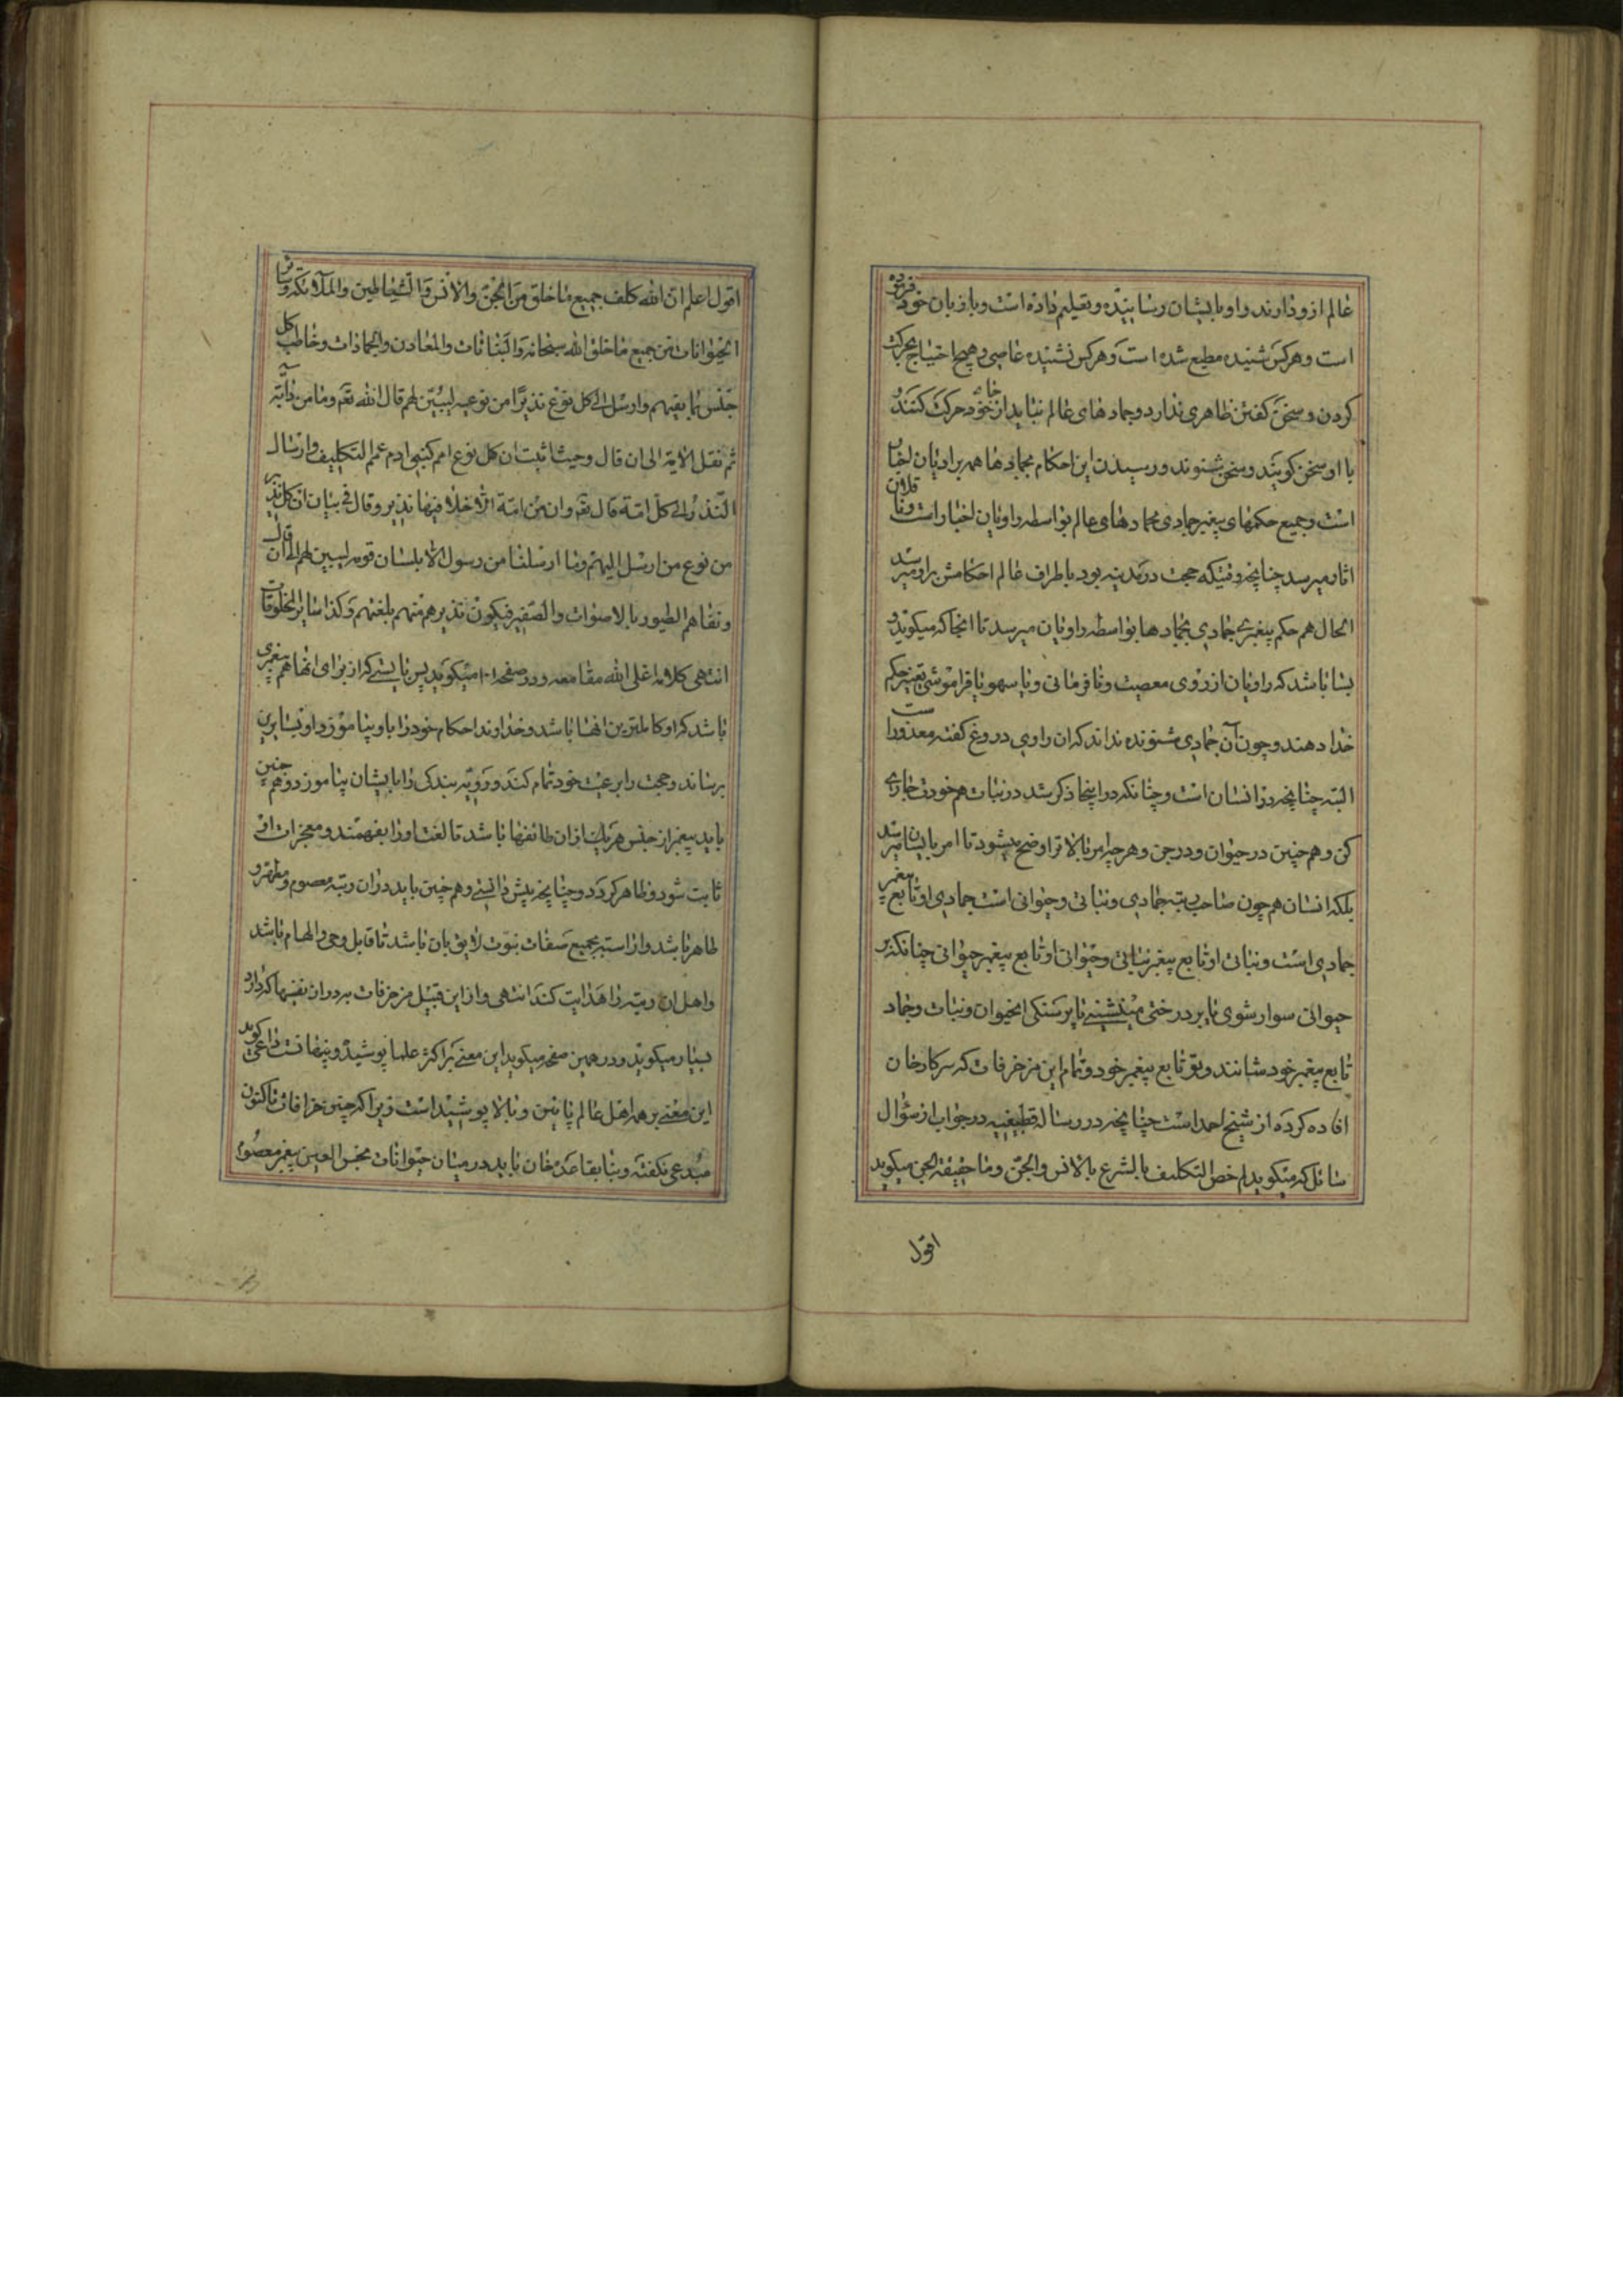 عالم ازو دارند و او بایشان رسانیده و تعلیم داده است و با زبان خود فرموده
است و هر کس شنیده مطیع شده است و هر کس نشنیده عاصی و هیچ احتیاج بحرکت
کردن و سخن کفتن ظاهری ندارد و جمادهای عالم نباید از جای خود حرکت کنند و
با او سخن کویند و سخن بشنوند و رسیدن این احکام بجمادها همه براویان اخبار
است و جمیع حکمهای پیغمبر جمادی بجمادهای عالم بواسطه راویان اخبار است و ناقلان
اثار میرسد چنانچه وقتیکه حجت در مدینه بود باطراف عالم احکامش براو میرسد
الحال هم حکم پیغمبری جمادی بجمادها بواسطه راویان میرسد تا انجا که میکوید و
بسا باشد که راویان از روی معصیت و نافرمانی و یا سهو یا فراموشی تغییر حکم
خدا دهند و چون آن جمادی شنونده نداند که ان راوی دروغ کفته معذور است
البته چنانچه در انسان است و چنانکه در اینجا ذکر شد در نبات هم خود جاری
کن و هم چنین در حیوان و در جن و هر چه امر بالاتر اوضح میشود تا امر بایشان میرسد
بلکه انسان هم چون صاحب رتبه جمادی و نباتی و حیوانی است جمادی او تابع پیغمبر
جمادی است و نباتی او تابع پیغمبر نباتی و حیوانی او تابع پیغمبر حیوانی چنانکه بر
حیوانی سوار شوی یا بر درختی میشینی یا بر سنکی الحیوان و نبات و جماد
تابع پیغمبر خود شانند و تو تابع پیغمبر خود و تمام این مزخرفات که سرکار خان
افاده کرده از شیخ احمد است چنانچه در رساله قطیفیه در جواب از سؤال
سائل که میکوید لم خص التکلیف بالشرع بالانس و الجن و ما حقیقة الجن میکوید
اقول
اقول اعلم ان الله کلف جمیع ما خلق من الجن و الانس و الشیاطین و الملائکة و سائر
الحیوانات من جمیع ما خلق الله سبحانه و النباتات و المعادن و الجمادات و خاطب کل
جنس بما یفهم و ارسل الی کل نوع نذیرا من نوعه لیبین لهم قال الله تع و ما من دابة
ثم نقل الآیة الی ان قال و حیث ثبت ان کل نوع امم کبنی ادم عمم التکلیف و ارسال
النذر الی کل امة قال تع و ان من امة الا خلا فیها نذیر و قال فی بیان ان کل نذیر
من نوع من ارسل الیهم و ما ارسلنا من رسول الا بلسان قومه لیبین لهم الی ان قال
و تفاهم الطیور بالاصوات و الصفیر فیکون نذیرهم منهم بلغتهم و کذا سایر المخلوقات
انتهی کلامه اعلی الله مقامه و در صفحه ۱۰ میکوید پس بایستی که از برای انها هم پیغمبری
باشد که او کاملترین انها باشد و خداوند احکام خود را باو بیاموزد و او بسایرین
برساند و حجت را بر رعیت خود تمام کند و رویه بندکی را بایشان بیاموزد و هم چنین
باید پیغمبر از جنس هر یک از ان طائفها باشد تا لغت او را بفهمند و معجزات او
ثابت شود و ظاهر کردد و چنانچه پیش دانستی و هم چنین باید در ان رتبه معصوم و مطهر و
طاهر باشد و اراسته بجمیع صفات نبوت لایق بان باشد تا قابل وحی و الهام باشد
و اهل ان رتبه را هدایت کند انتهی و از این قبیل مزخرفات
بسیار میکوید و در همین صفحه میکوید این معنی بر اکثر علما پوشیده و پنهانست داعی کوید
این معنی بر همه اهل عالم پائین و بالا پوشیده است زیرا که چنین خرافات تا کنون
مبدعی نکفته و بنا بقاعده خان باید در میان حیوانات نجس العین پیغمبر معصوم